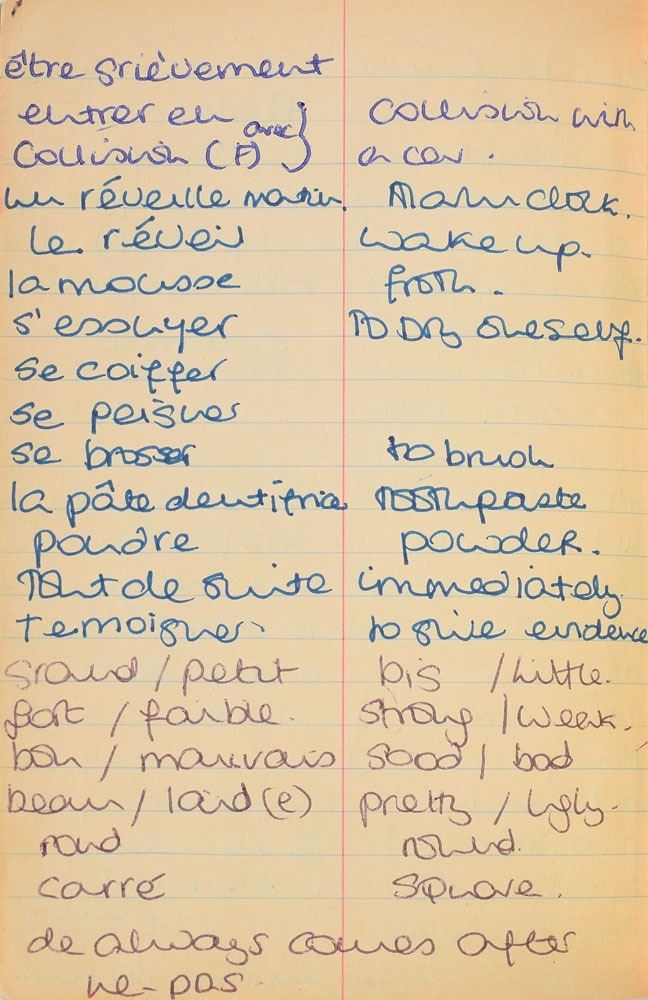 être grièvement
entrer en avec} Collision with
Collision (F) a car.
un réveille matin. Alarm clock.
le réveil wake up.
la mousse froth.
s'essuyer TO DRy oneself.
se coiffer
se peigner
se brosser to brush
la pâte dentifrice toothpaste
poudre powder.
Tout de suite immediately.
temoigner to give evidence
grand / petit big / little.
fort / faible. strong / weak.
bon / mauvais good / bad
beau / laid (e) pretty / Ugly.
rond round.
carré square.
de always comes after
ne-pas.